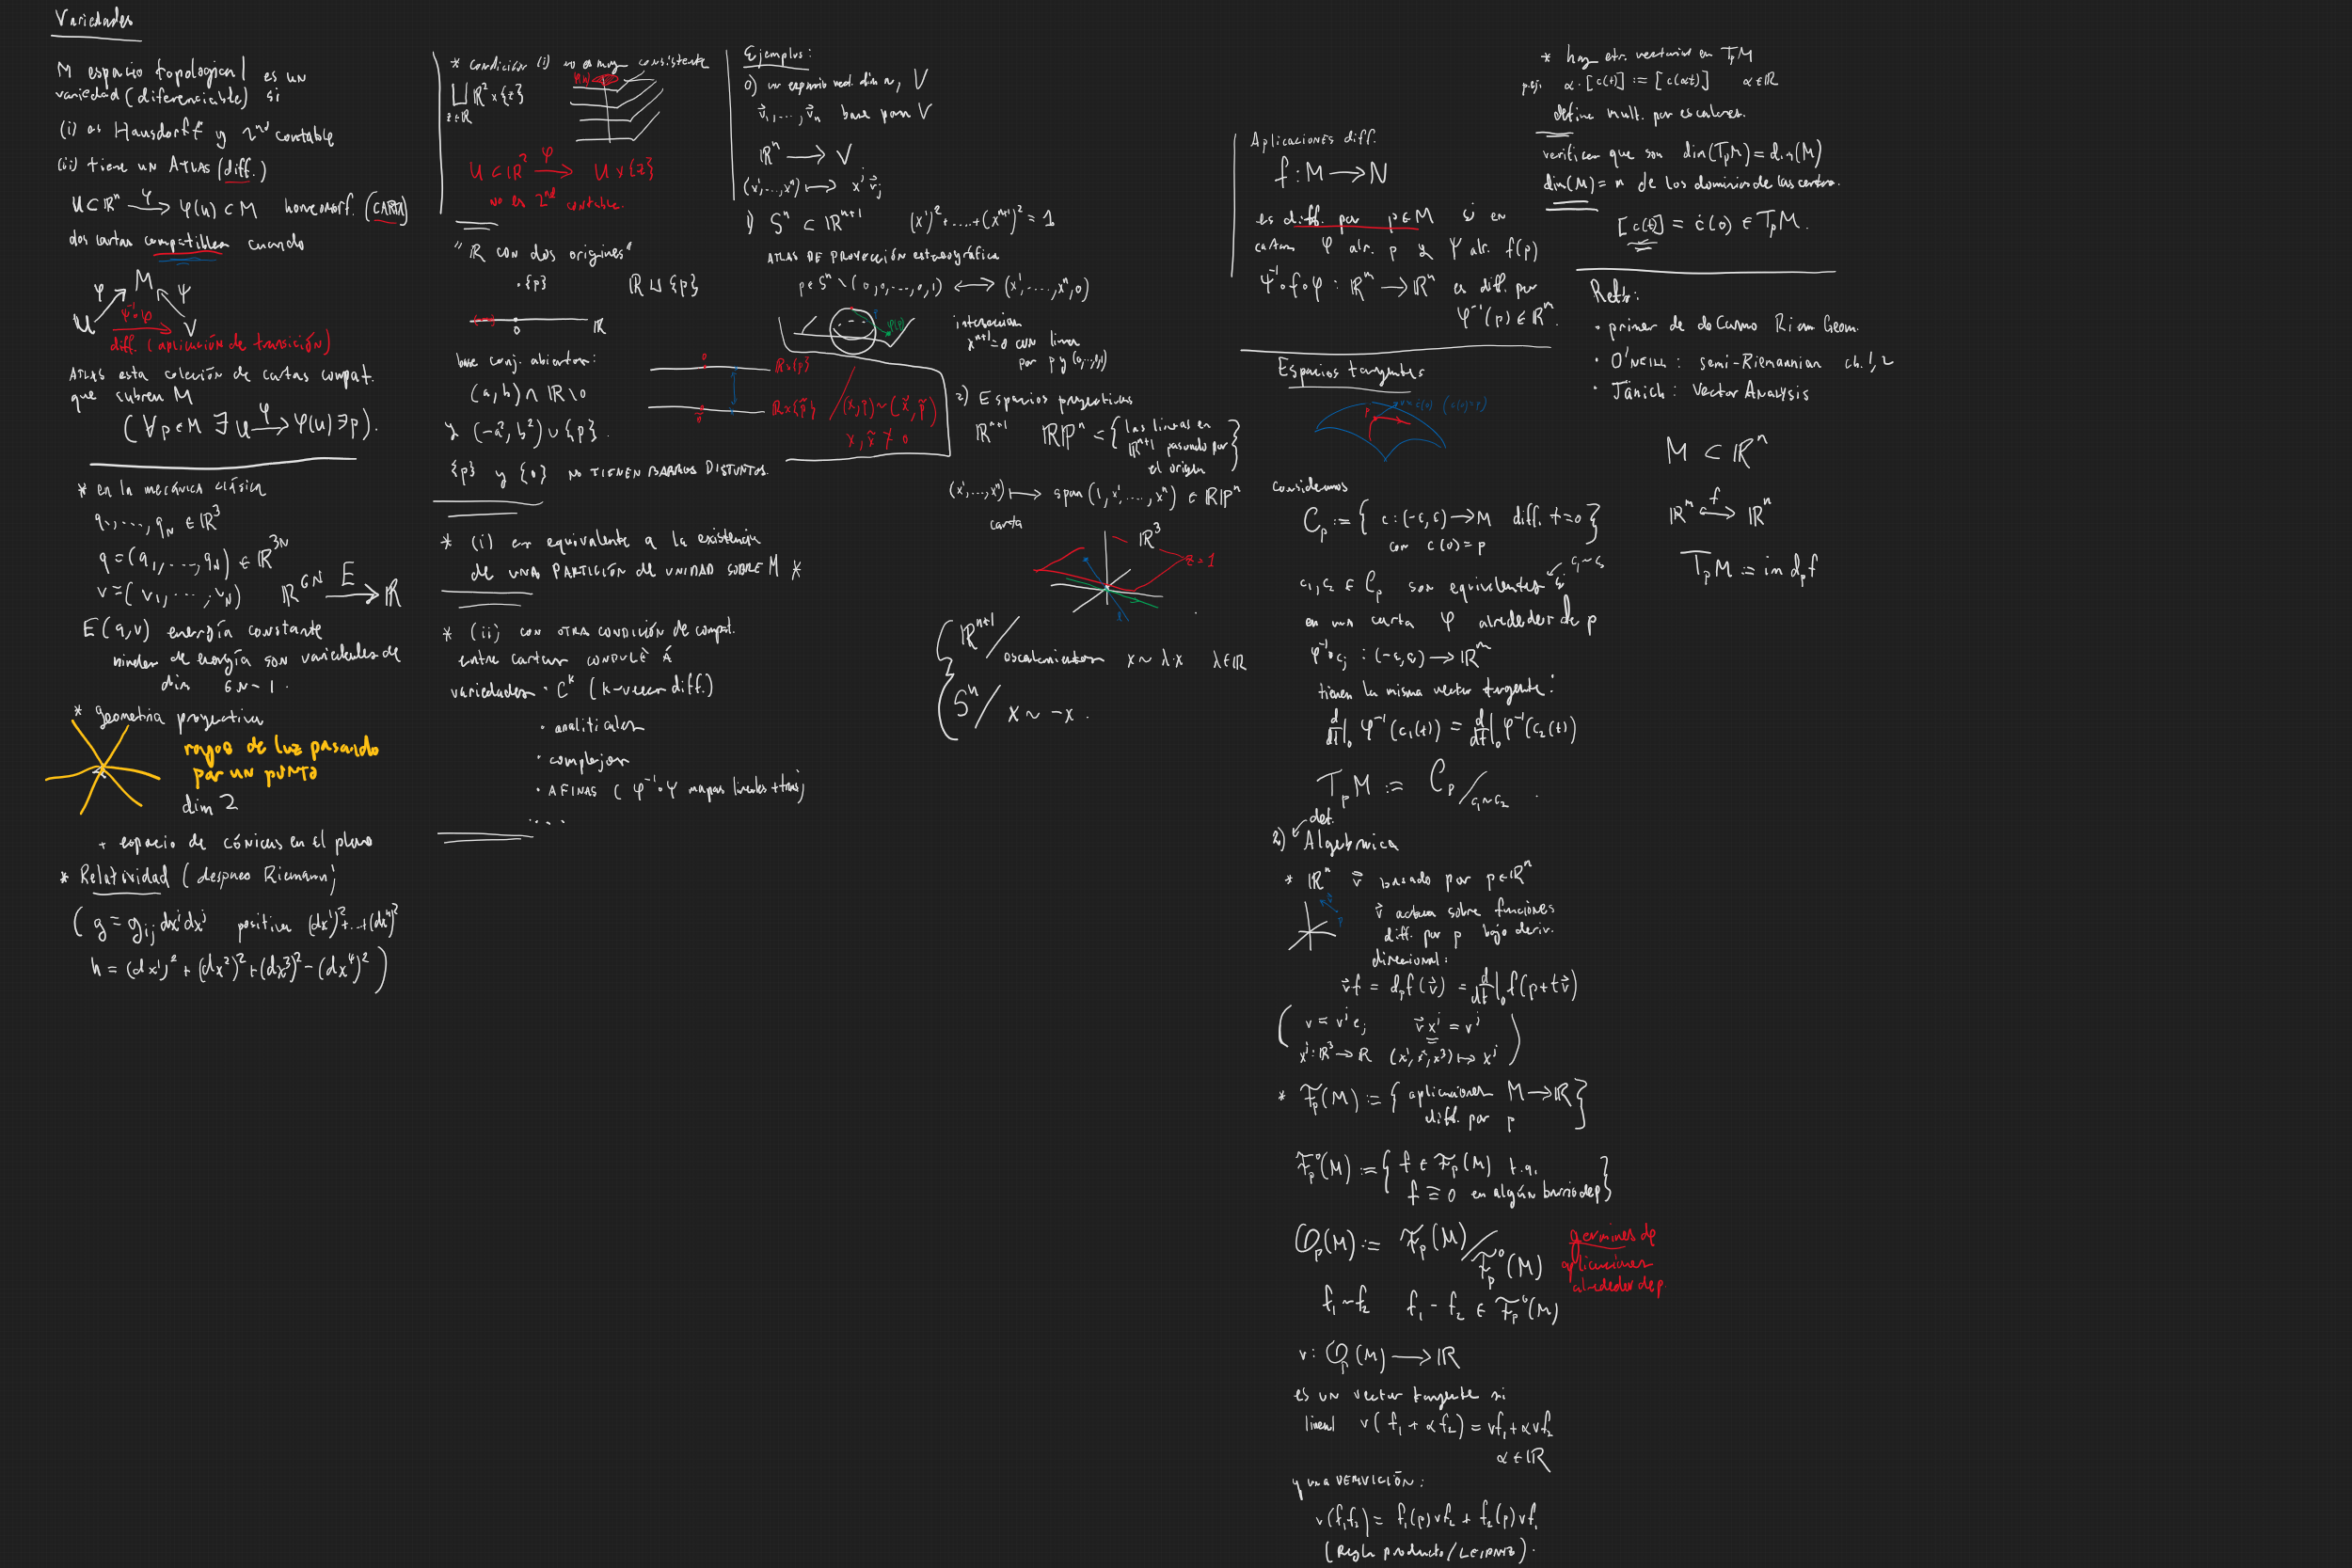 Variedades
M espacio topological es un
variedad (diferenciable) si
(i) es Hausdorff y 2nd contable
(ii) tiene un ATLAS (diff.)
U ⊂ ℝⁿ —φ→ φ(U) ⊂ M homeomorf. (CARTA)
dos cartas compatibles cuando
M
φ ψ
U ψ⁻¹∘φ V
diff. (aplicación de transición)
ATLAS esta coleción de cartas compat.
que cubren M
(∀p∈M ∃ U —φ→ φ(U) ∋ p).
* en la mecánica clásica
q₁, ..., q_N ∈ ℝ³
q = (q₁, ..., q_N) ∈ ℝ³ᴺ
v = (v₁, ..., v_N) ℝ⁶ᴺ —E→ ℝ
E(q,v) energía constante
niveles de energía son variedades de
dim 6N-1.
* geometria proyectiva
rayos de luz pasando
por un punto
dim 2
+ espacio de cónicas en el plano
* Relatividad (despues Riemann)
( g = g_ij dxⁱdxʲ positiva (dx¹)²+...+(dxⁿ)²
h = (dx¹)² + (dx²)² + (dx³)² - (dx⁴)² )
* condición (i) no es muy consistente
⨆ ℝ² × {z}
z∈ℝ
U ⊂ ℝ² —φ→ U × {z}
no es 2nd contable.
"ℝ con dos origines"
· {p} ℝ ⊔ {p}
0 ℝ
base conj. abiertos:
(a, b) ∩ ℝ\0
y (-a², b²) ∪ {p}.
{p} y {0} NO TIENEN BARRIOS DISTINTOS.
0 ℝ×{p}
0 ℝ×{p̃} / (x,p) ~ (x̃, p̃)
x, x̃ ≠ 0
* (i) es equivalente a la existencia
de una PARTICIÓN de UNIDAD SOBRE M *
* (ii) con OTRA CONDICIÓN de compat.
entre cartas CONDULÈ Á
variedades · Cᵏ (k-veces diff.)
· analiticales
· complejas
· AFINAS ( φ⁻¹∘ψ mapas lineales + tras)
....
Ejemplos:
0) un espacio vect. dim n, V
v⃗₁, ..., v⃗ₙ base para V
ℝⁿ → V
(x¹, ..., xⁿ) ↦ xʲ v⃗ⱼ
1) Sⁿ ⊂ ℝⁿ⁺¹ (x¹)² + .... + (xⁿ⁺¹)² = 1
ATLAS DE PROYECCIÓN estereográfica
p ∈ Sⁿ \ (0,0,...,0,1) ↔ (x¹, ..., xⁿ, 0)
φ(p)
interseccion
xⁿ⁺¹=0 con linea
por p y (0,...,0,1)
2) Espacios proyectivas
ℝⁿ⁺¹ ℝPⁿ = { las lineas en
ℝⁿ⁺¹ pasando por
el origen }
(x¹,...,xⁿ) ↦ span (1, x¹, ..., xⁿ) ∈ ℝPⁿ
carta
ℝ³
z = 1
l
ℝⁿ⁺¹ / escalamientos x ~ λ·x λ∈ℝ
Sⁿ / x ~ -x.
Aplicaciones diff.
f: M → N
es diff. por p∈M si en
cartas φ alr. p y ψ alr. f(p)
ψ⁻¹∘f∘φ : ℝᵐ → ℝⁿ es diff. por
φ⁻¹(p) ∈ ℝᵐ.
Espacios tangentes
p v = ċ(0) (c(0)=p)
consideramos
C_p := { c: (-ε, ε) → M diff. t=0 }
con c(0) = p
c₁, c₂ ∈ C_p son equivalentes si c₁~c₂
en una carta φ alrededor de p
φ⁻¹∘cⱼ : (-ε, ε) → ℝᵐ
tienen la misma vector tangente:
d/dt|₀ φ⁻¹(c₁(t)) = d/dt|₀ φ⁻¹(c₂(t))
T_pM := C_p / c₁~c₂ .
def.
2) Algebraica
* ℝⁿ v⃗ basado por p∈ℝⁿ
v⃗ p
v⃗ actua sobre funciónes
diff. por p bajo deriv.
direcional:
v⃗f = d_pf(v⃗) = d/dt|₀ f(p+tv⃗)
( v = vʲeⱼ v⃗xʲ = vʲ
xʲ: ℝ³ → ℝ (x¹,x²,x³) ↦ xʲ )
* F_p(M) := { aplicaciones M → ℝ
diff. por p }
F_p⁰(M) := { f ∈ F_p(M) t.q.
f ≡ 0 en algún barrio de p }
O_p(M) := F_p(M) / F_p⁰(M)
germines de
aplicaciones
alrededor de p
f₁ ~ f₂ f₁ - f₂ ∈ F_p⁰(M)
v: O_p(M) → ℝ
es un vector tangente si
lineal v(f₁ + αf₂) = vf₁ + αvf₂
α ∈ ℝ
y una DERIVICIÓN:
v(f₁f₂) = f₁(p)vf₂ + f₂(p)vf₁
(Regla producto/LEIBNIZ).
* hay etr. vectorial en T_pM
p.ej. α·[c(t)] := [c(αt)] α∈ℝ
define mult. por escalares.
verificar que son dim(T_pM) = dim(M)
dim(M) = n de los dominios de las cartas.
[c(t)] = ċ(0) ∈ T_pM.
Refs:
· primer de doCarmo Riem Geom.
· O'Neill: semi-Riemannian ch. 1, 2
· Jänich: Vector Analysis
M ⊂ ℝⁿ
ℝᵐ —f→ ℝⁿ
T_pM := im d_pf